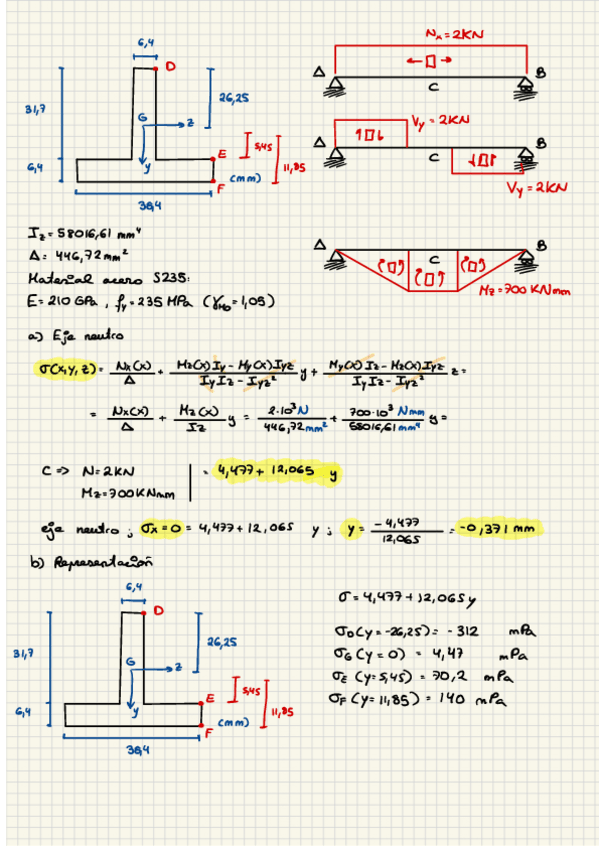 6,4
D
31,7
26,25
G
z
5,45
11,85
E
6,4
y
F
(mm)
38,4
Nx = 2KN
A
B
C
Vy = 2KN
A
B
C
Vy = 2KN
A
B
C
Mz = 700 KNmm
Iz = 58016,61 mm⁴
A = 446,72 mm²
Material acero S235:
E = 210 GPa , fy = 235 MPa (γM0 = 1,05)
a) Eje neutro
σ(x,y,z) = Nx(x)/A + (Mz(x)Iy - My(x)Iyz)/(IyIz - Iyz²) y + (My(x)Iz - Mz(x)Iyz)/(IyIz - Iyz²) z =
= Nx(x)/A + Mz(x)/Iz y = 2·10³N/446,72mm² + 700·10³ Nmm/58016,61mm⁴ y =
C => N = 2KN
Mz = 700KNmm
= 4,477 + 12,065 y
eje neutro ; σx = 0 = 4,477 + 12,065 y ; y = -4,477/12,065 = -0,371 mm
b) Representación
6,4
D
31,7
26,25
G
z
5,45
11,85
E
6,4
y
F
(mm)
38,4
σ = 4,477 + 12,065y
σD (y = -26,25) = -312 mPa
σG (y = 0) = 4,47 mPa
σE (y = 5,45) = 70,2 mPa
σF (y = 11,85) = 140 mPa